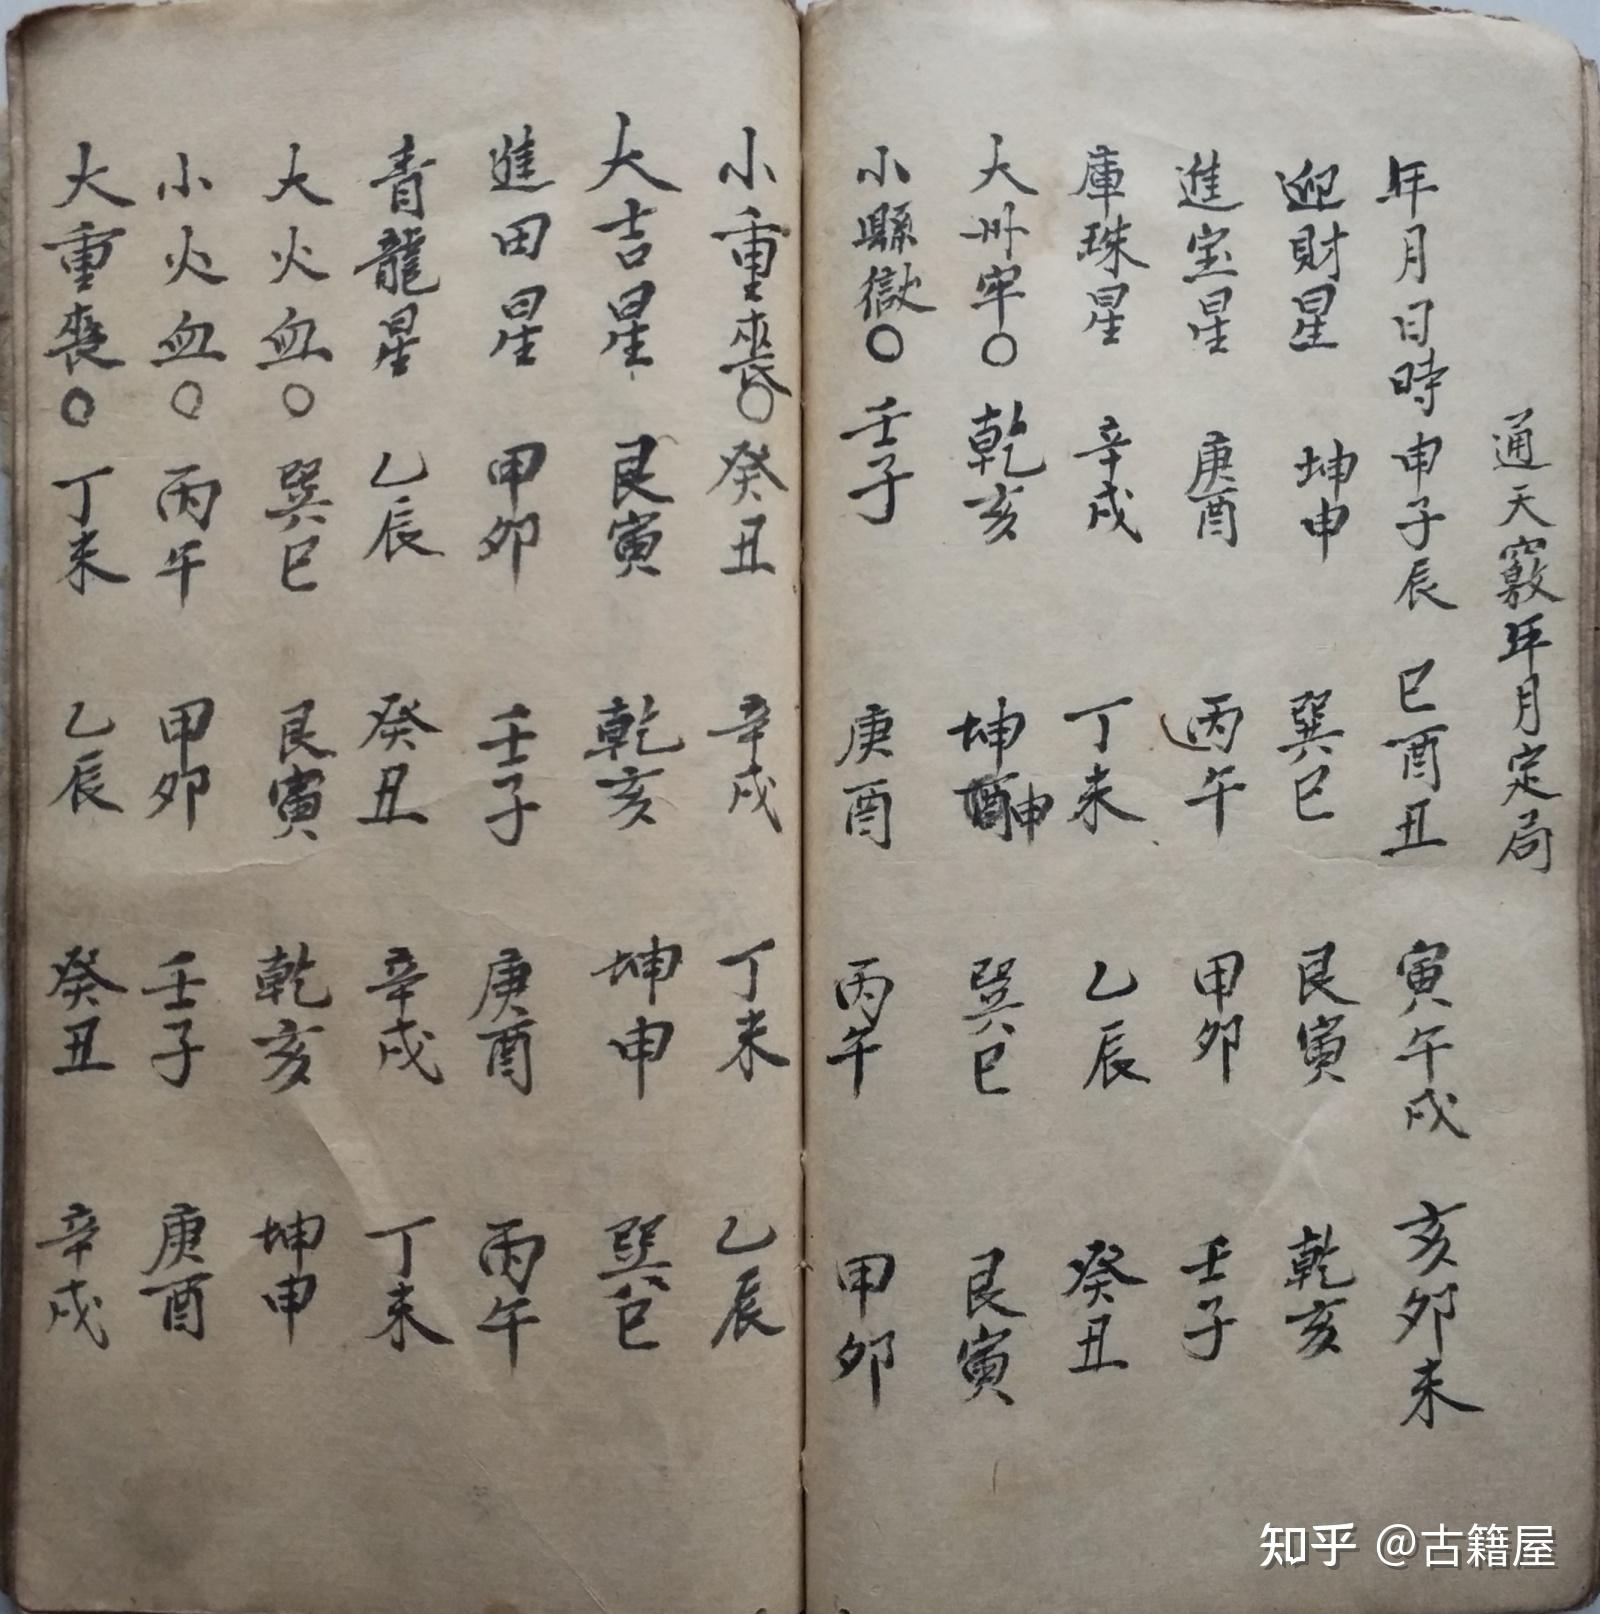 通天竅年月定局
年月日時 申子辰 巳酉丑 寅午戌 亥卯未
迎財星 坤申 巽巳 艮寅 乾亥
進宝星 庚酉 丙午 甲卯 壬子
庫珠星 辛戌 丁未 乙辰 癸丑
大州牢〇 乾亥 坤酉申 巽巳 艮寅
小縣獄〇 壬子 庚酉 丙午 甲卯
小重喪〇 癸丑 辛戌 丁未 乙辰
大吉星 艮寅 乾亥 坤申 巽巳
進田星 甲卯 壬子 庚酉 丙午
青龍星 乙辰 癸丑 辛戌 丁未
大火血〇 巽巳 艮寅 乾亥 坤申
小火血〇 丙午 甲卯 壬子 庚酉
大重喪〇 丁未 乙辰 癸丑 辛戌
知乎 @古籍屋